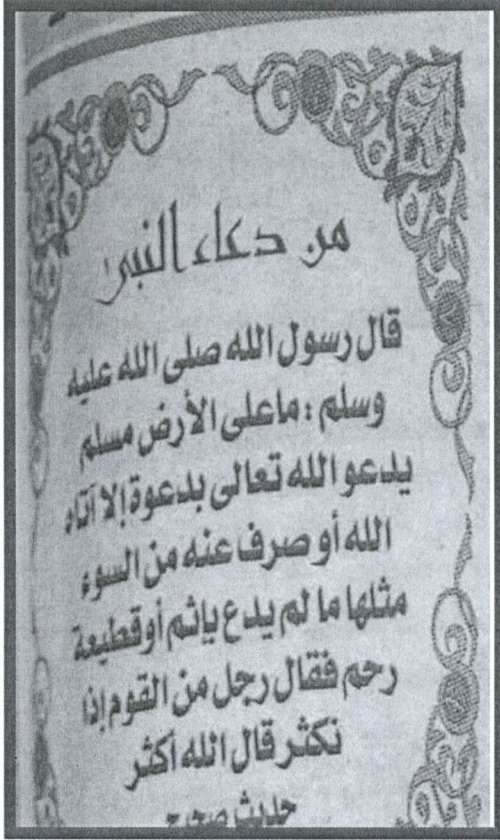 من دعاء النبي
قال رسول الله صلى الله عليه
وسلم : ما على الأرض مسلم
يدعو الله تعالى بدعوة إلا آتاه
الله أو صرف عنه من السوء
مثلها ما لم يدع بإثم أو قطيعة
رحم فقال رجل من القوم إذا
نكثر قال الله أكثر
حديث صحيح